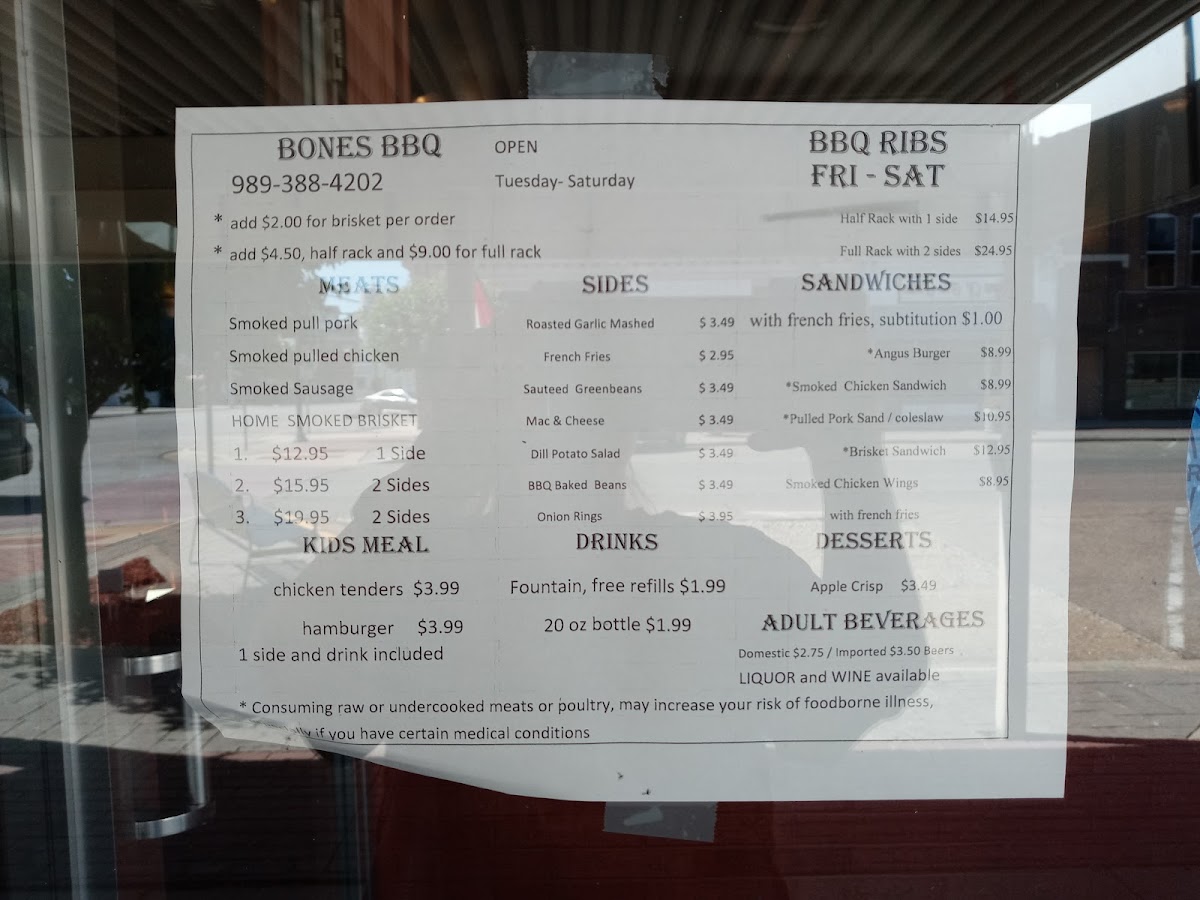 BONES BBQ
989-388-4202
OPEN
Tuesday- Saturday
* add $2.00 for brisket per order
* add $4.50, half rack and $9.00 for full rack
BBQ RIBS
FRI - SAT
Half Rack with 1 side $14.95
Full Rack with 2 sides $24.95
MEATS
Smoked pull pork
Smoked pulled chicken
Smoked Sausage
HOME SMOKED BRISKET
1. $12.95 1 Side
2. $15.95 2 Sides
3. $19.95 2 Sides
SIDES
Roasted Garlic Mashed $ 3.49
French Fries $ 2.95
Sauteed Greenbeans $ 3.49
Mac & Cheese $ 3.49
Dill Potato Salad $ 3.49
BBQ Baked Beans $ 3.49
Onion Rings $ 3.95
SANDWICHES
with french fries, subtitution $1.00
*Angus Burger $8.99
*Smoked Chicken Sandwich $8.99
*Pulled Pork Sand / coleslaw $10.95
*Brisket Sandwich $12.95
Smoked Chicken Wings $8.95
with french fries
KIDS MEAL
chicken tenders $3.99
hamburger $3.99
1 side and drink included
DRINKS
Fountain, free refills $1.99
20 oz bottle $1.99
DESSERTS
Apple Crisp $3.49
ADULT BEVERAGES
Domestic $2.75 / Imported $3.50 Beers
LIQUOR and WINE available
* Consuming raw or undercooked meats or poultry, may increase your risk of foodborne illness,
if you have certain medical conditions